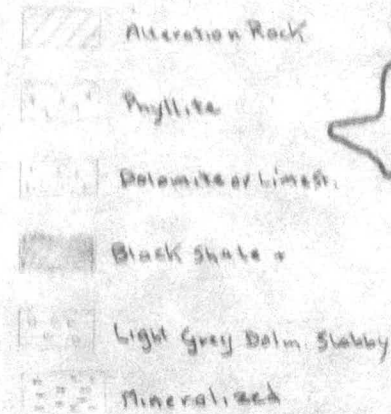 Alteration Rock
Phyllite
Dolomite or Limest.
Black Shale
Light Grey Dolm. Slabby
Mineralized